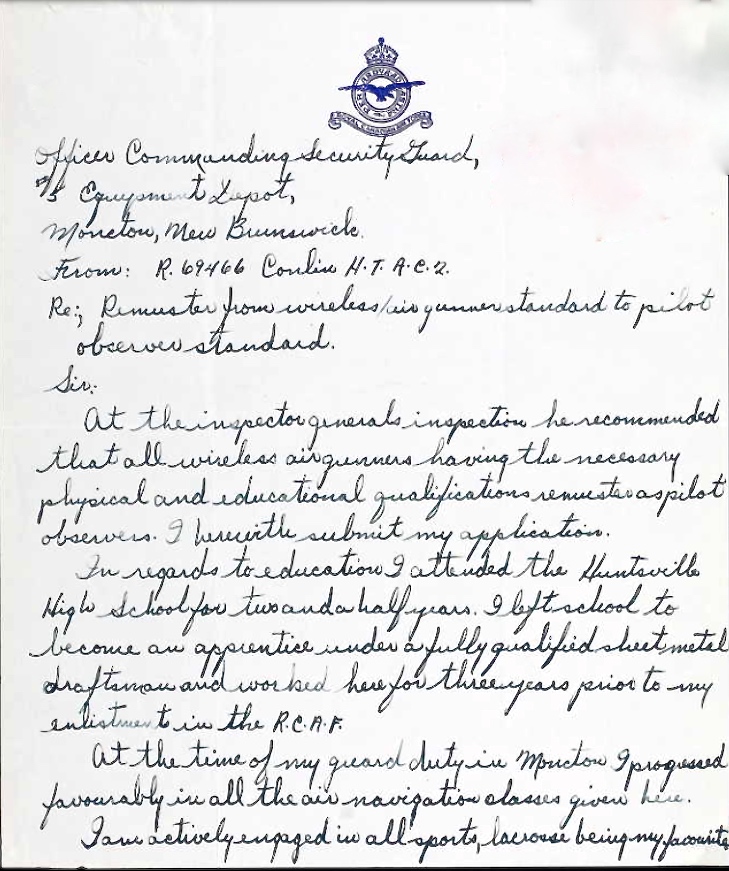 PER ARDUA AD ASTRA
ROYAL CANADIAN AIR FORCE
Officer Commanding Security Guard,
#5 Equipment Depot,
Moncton, New Brunswick.
From: R. 69466 Conlin H.T. A.C.2.
Re; Remuster from wireless/air gunner standard to pilot
observer standard.
Sir:
At the inspector generals inspection he recommended
that all wireless air gunners having the necessary
physical and educational qualifications remuster as pilot
observers. I herewith submit my application.
In regards to education I attended the Huntsville
High School for two and a half years. I left school to
become an apprentice under a fully qualified sheet metal
draftsman and worked here for three years prior to my
enlistment in the R.C.A.F.
At the time of my guard duty in Moncton I progressed
favourably in all the air navigation classes given here.
I am actively engaged in all sports, lacrosse being my favourite